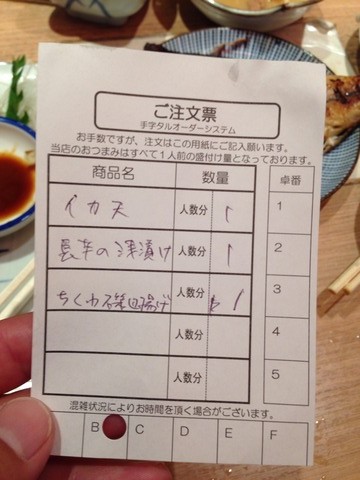 ご注文票
手字タルオーダーシステム
お手数ですが、注文はこの用紙にご記入願います。
当店のおつまみはすべて1人前の盛付け量となっております。
商品名 数量 卓番
イカ天 人数分 1 1
長芋の深漬け 人数分 1 2
ちくわ磯辺揚げ 人数分 1 3
人数分 4
人数分 5
混雑状況によりお時間を頂く場合がございます。
B C D E F